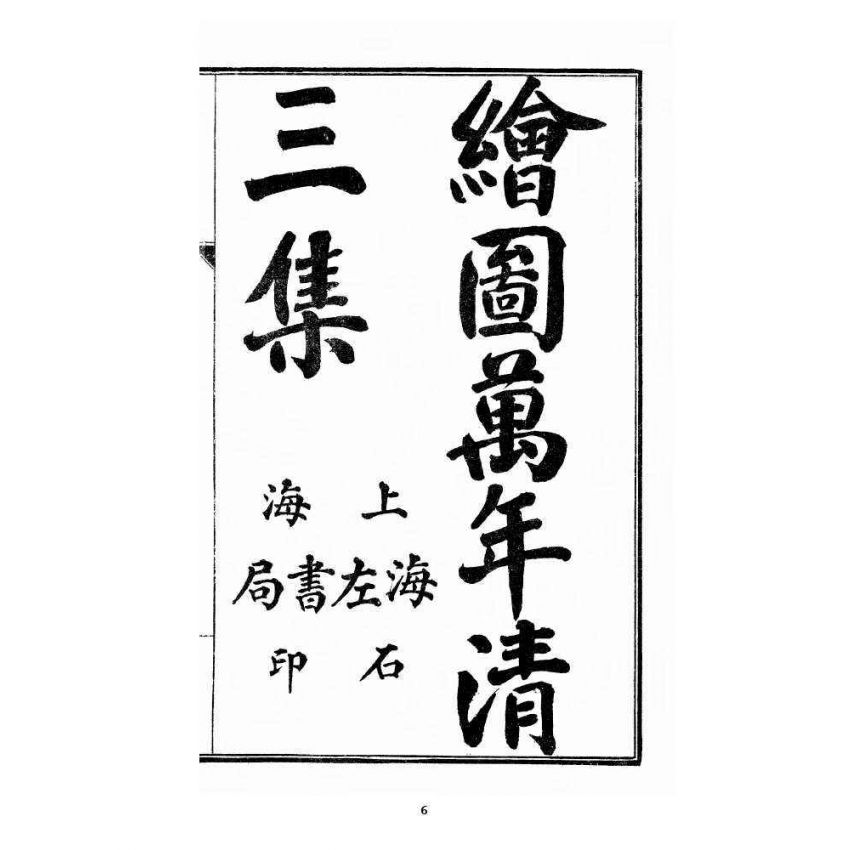 繪圖萬年清
三集
上海
海左書局
石印
6